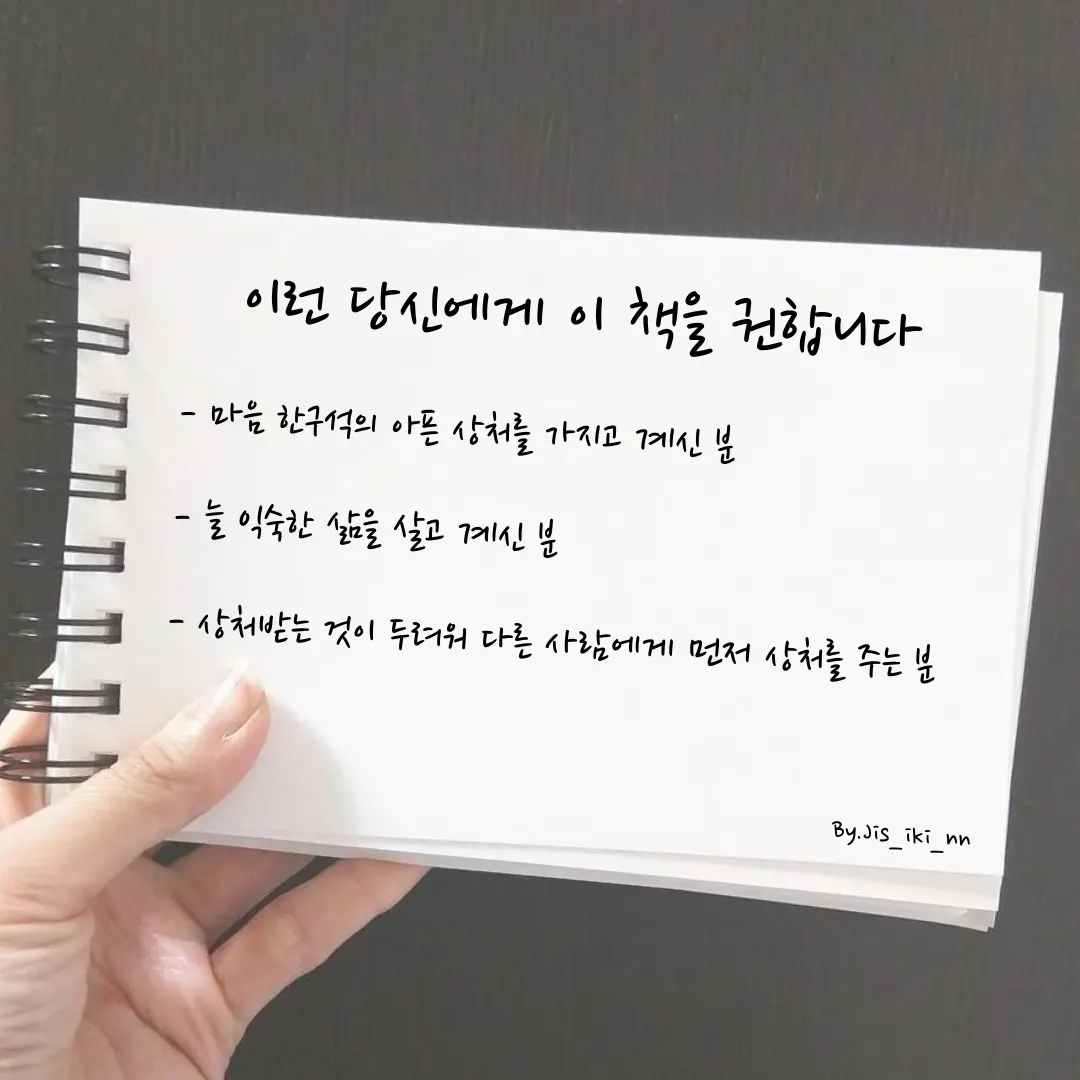 이런 당신에게 이 책을 권합니다
- 마음 한구석의 아픈 상처를 가지고 계신 분
- 늘 익숙한 삶을 살고 계신 분
- 상처받는 것이 두려워 다른 사람에게 먼저 상처를 주는 분
By.Jis_iki_nn